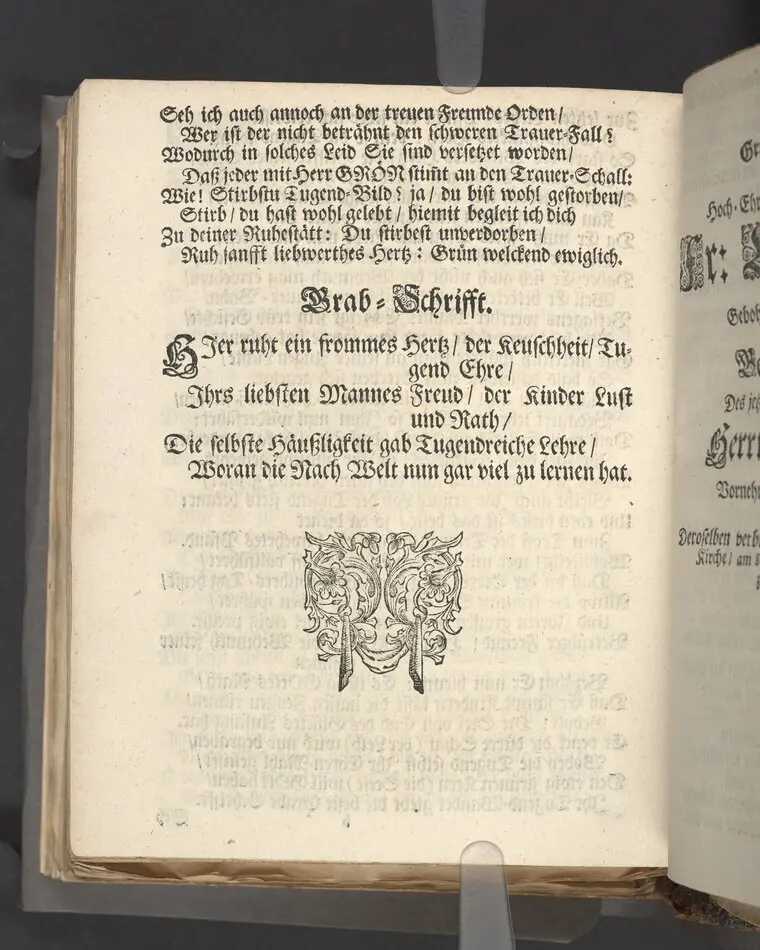 Seh ich auch annoch an der treuen Freunde Orden/
Wer ist der nicht beträhnt den schweren Trauer-Fall?
Wodurch in solches Leid Sie sind versetzet worden/
Daß jeder mit Herr GRÖN stimt an den Trauer-Schall:
Wie! Stirbstu Tugend-Bild? ja/ du bist wohl gestorben/
Stirb/ du hast wohl gelebt/ hiemit begleit ich dich
Zu deiner Ruhestätt: Du stirbest unverdorben/
Ruh sanfft liebwerthes Hertz: Grün welckend ewiglich.
Grab-Schrifft.
HJer ruht ein frommes Hertz/ der Keuschheit/ Tu-
gend Ehre/
Jhrs liebsten Mannes Freud/ der Kinder Lust
und Rath/
Die selbste Häußligkeit gab Tugendreiche Lehre/
Woran die Nach Welt nun gar viel zu lernen hat.
Hoch-Ehr
Fr:
Geboh
Des jetz
Herrn
Vornehm
Deroselben verb
Kirche/ am